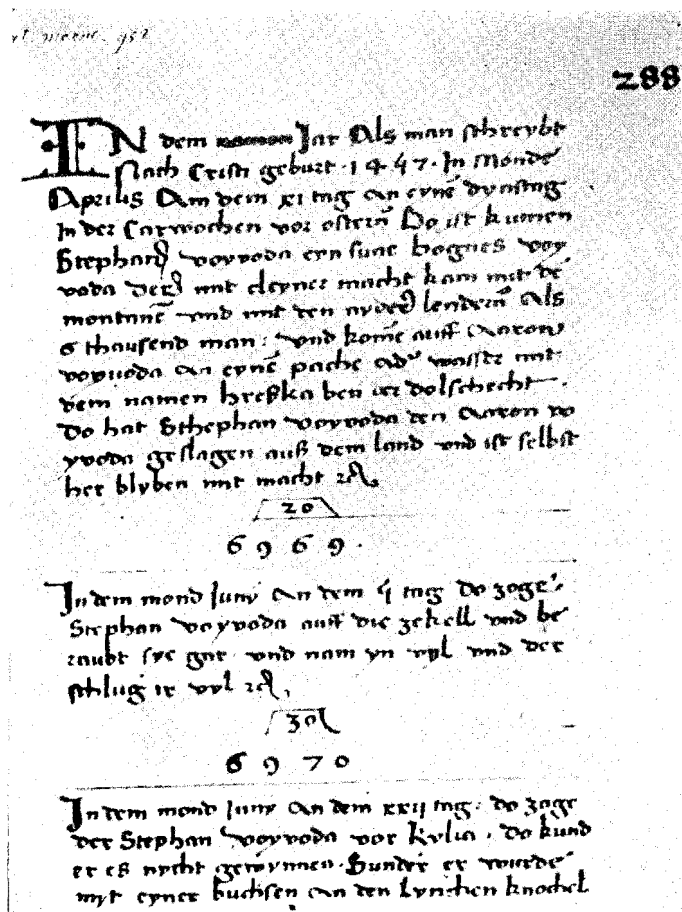 288
IN dem Jar Als man schreybt
Nach Cristi geburt · 1447 · In Mondē
Aprilis Am dem xi tag An eynē dynstag
In der Carwochen vor osterñ Do ist kumen
Stephan voyvoda eyn sune bognes voy
voda mit cleyner macht kam mit dē
montanē vnd mit den nyderñ lenderñ Als
6 thausend man · vnd komē auff Aaron
voyvoda An eynē pache adˀ wasser mit
dem namen hreßka ben dolschecht ·
Do hat Sthephan voyvoda den Aaron vo
yvoda geslagen auß dem land vnd ist selbst
her blyben mit macht
20
6 9 6 9 ·
In dem mond Juny An dem ij tag Do zoge
Stephan voyvoda auff die zekell vnd be
raubt sye gar vnd nam yn vyl vnd der
schlug ir vyl
30
6 9 7 0
In dem mond Juny An dem xxij tag · do zoge
der Stephan voyvoda vor kylia · do kund
er es nycht gewynnen · Sunder er wurde
myt eyner buchsen An den lyncken knochel